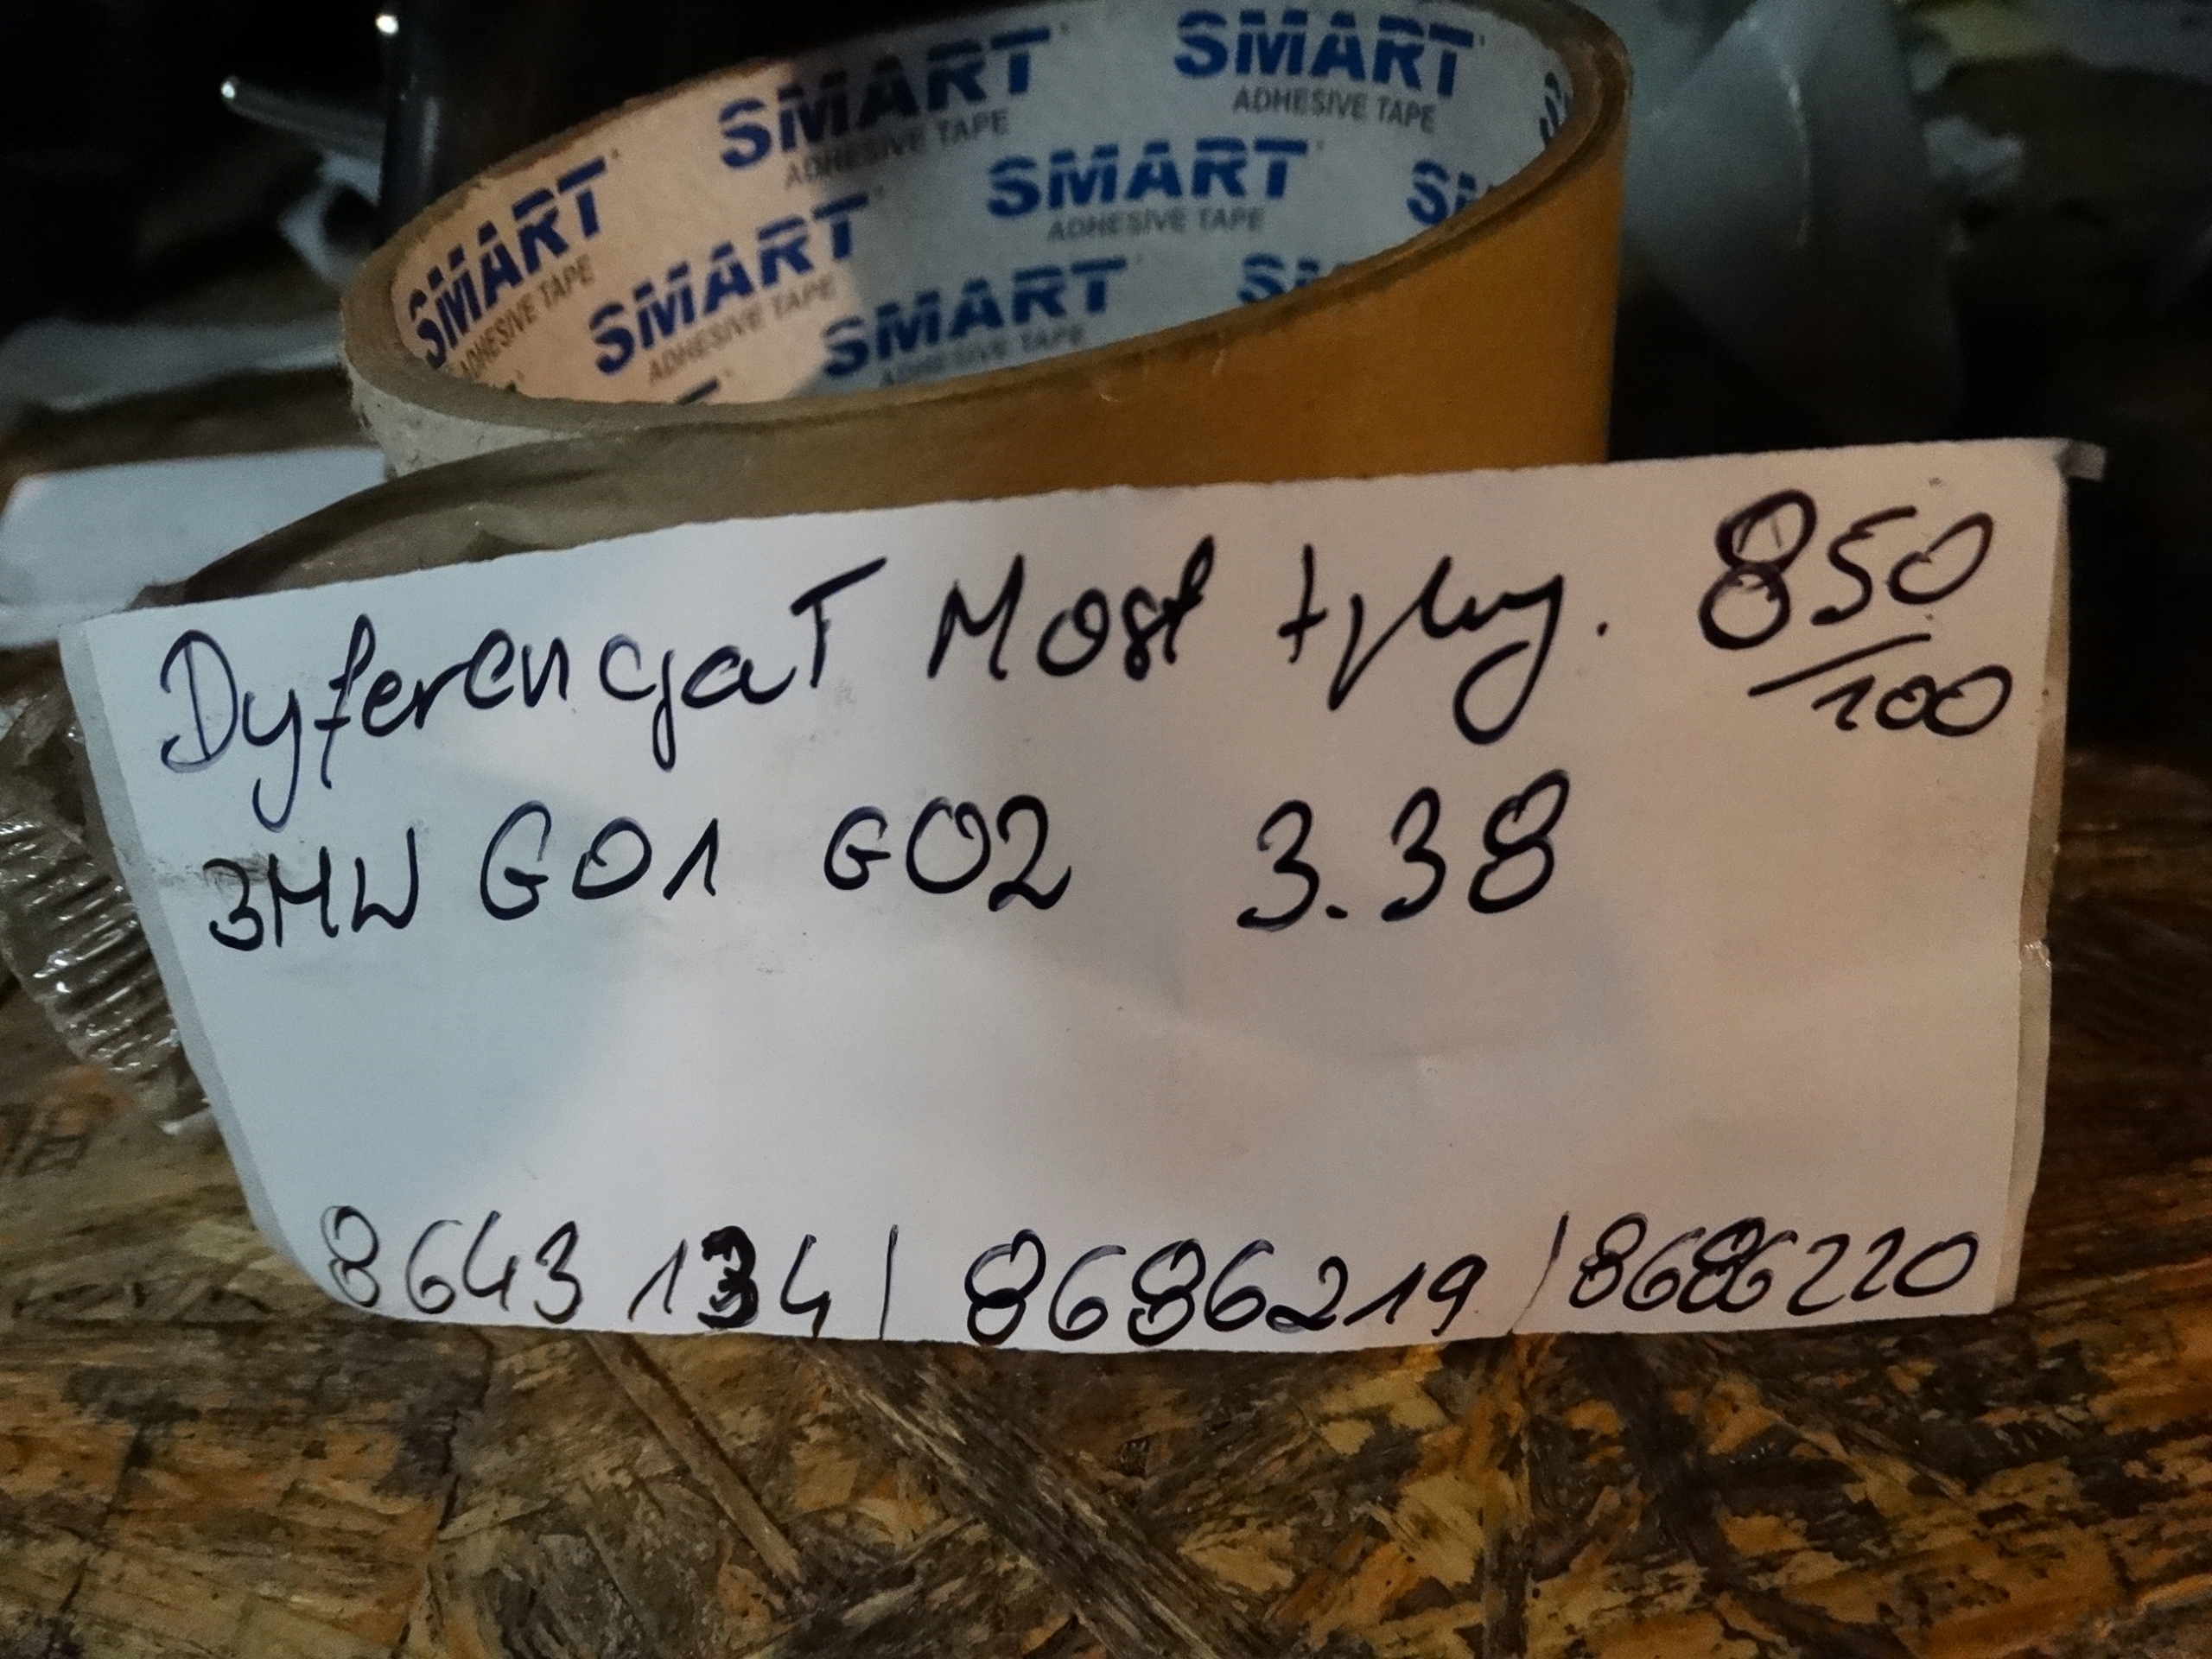 SMART ADHESIVE TAPE
SMART ADHESIVE TAPE
SMART ADHESIVE TAPE
SMART ADHESIVE TAPE
SMART ADHESIVE TAPE
SMART ADHESIVE TAPE
Dyferencjał Most tylny. 850
/100
BMW G01 G02 3.38
8643134 / 8686219 / 8686220